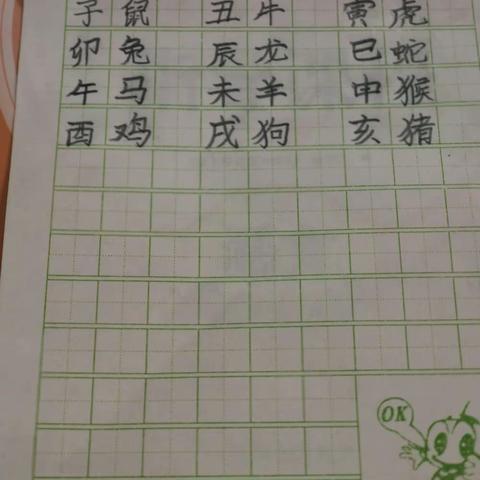 子鼠 丑牛 寅虎
卯兔 辰龙 巳蛇
午马 未羊 申猴
酉鸡 戌狗 亥猪
OK